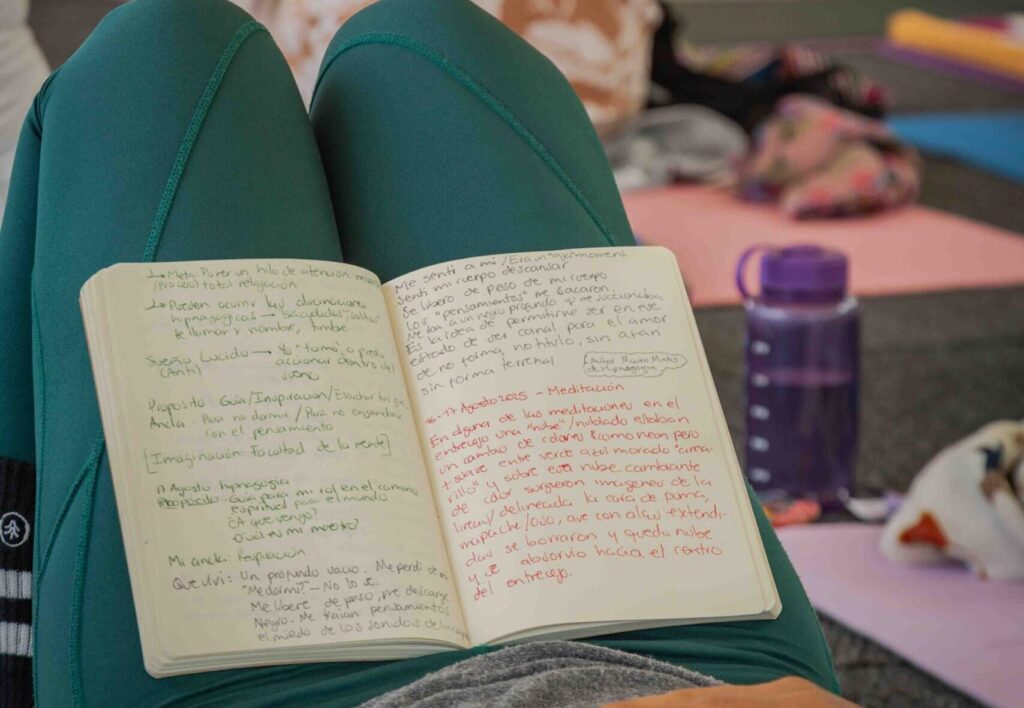 Meta: Poner un hilo de atención
(Proceso) total relajación
Pueden ocurrir las alucinaciones
hipnagógicas → Sacudidas, saltos
te llaman x nombre, timbre
Sueño Lucido → Yo "tomo o
(Anti) accionar dentro del
sueño
Proposito: Guía/Inspiración/Escuchar
Ancla: Para no dormir/Para no engancharse
con el pensamiento
[Imaginación: Facultad de la mente]
17 Agosto hipnagogia
Proposito: Guía para mi rol en el camino
espiritual para el mundo
¿A que vengo?
¿Cuál es mi
Mi ancla: Respiración
Que viví: Un profundo vacio. Me perdí de mi
"Me dormí?" — No lo se.
Me liberé de peso, me descargué
Negro. Me traían pensamientos
el miedo de los sonidos de la
Me sentí a mi/Era un
Sentí mi cuerpo descansar
Se liberó de peso de mi cuerpo
Los "pensamientos" me sacaron.
Me iba a un negro profundo q me succionaba
Es la idea de permitirme ser en ese
estado de ser canal para el amor
de no forma, no titulo, sin afán
sin forma terrenal
Autor
de Hipnagogia
16-17 Agosto 2025 - Meditación
En alguna de las meditaciones en el
entrecejo una "nube"/nublado estaban
un cambio de colores como neon pero
+ suave entre verde azul morado "ama-
rillo" y sobre esa nube cambiante
de color surgieron imagenes de la
linea/delineada la cara de puma,
mapache/oso, ave con alas extendi-
das se borraron y quedo nube
y se absorvio hacia el centro
del entrecejo.